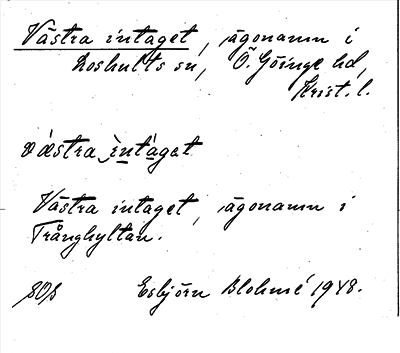 Västra intaget, ägonamn i
Loshults sn, Ö. Göinge hd,
Krist. l.
västra intaget
Västra intaget, ägonamn i
Trånghyltan.
Esbjörn Blohmé 1948.